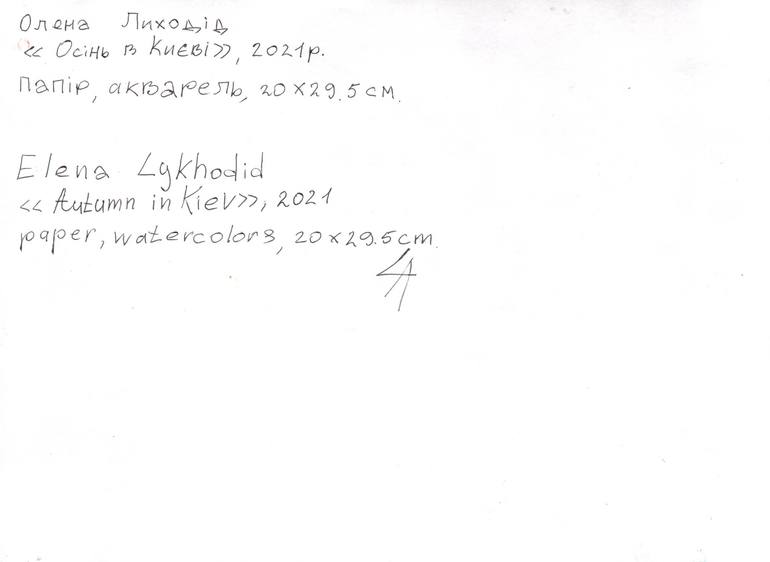 Олена Лиходід
<< Осінь в Києві>>, 2021р.
Папір, акварель, 20×29.5см.
Elena Lykhodid
<< Autumn in Kiev>>, 2021
paper, watercolors, 20×29.5cm.